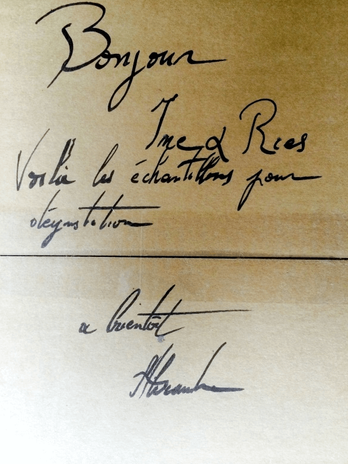 Bonjour
Ine & Ries
Voilà les échantillons pour
dégustation
a bientôt